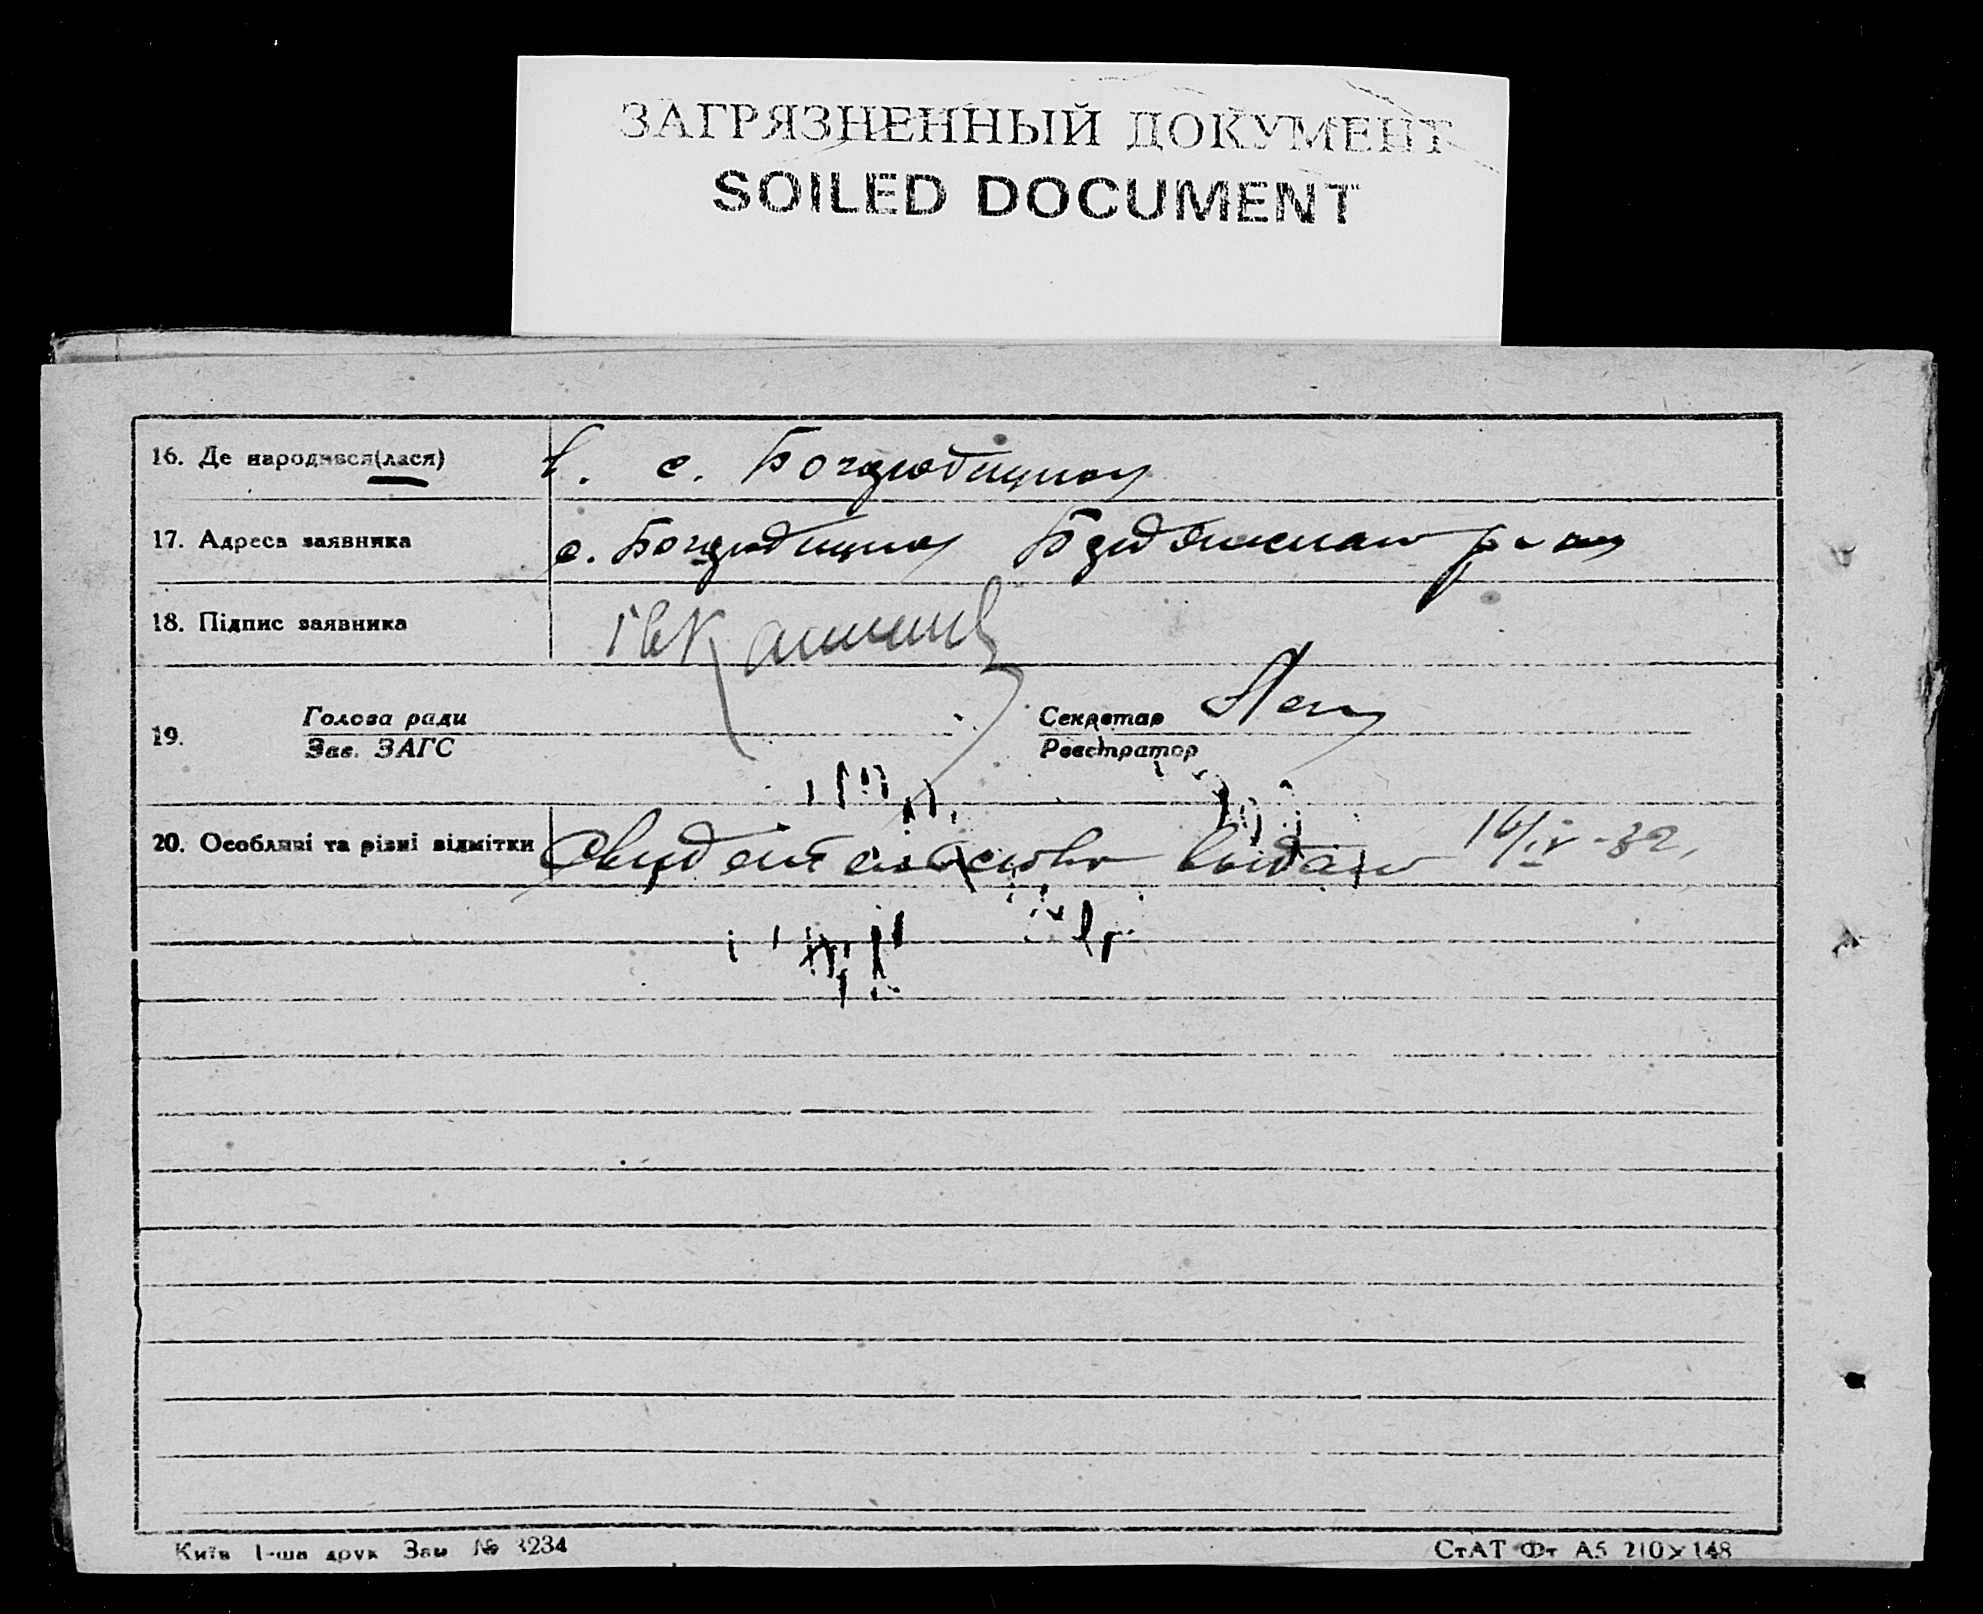 ЗАГРЯЗНЕННЫЙ ДОКУМЕНТ
SOILED DOCUMENT
16. Де народився(лася) в. с.
17. Адреса заявника с.
18. Підпис заявника
19. Голова ради Секретар
Зав. ЗАГС Реєстратор
20. Особливі та різні відмітки Свидетельство выдано 16/IV-32,
Київ 1-ша друк Зам № 3234 СтАТ Фт А5 210×148